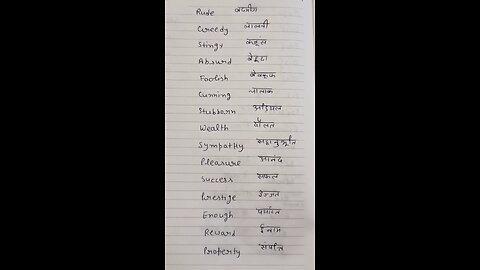 Rude बदतमीज
Greedy लालची
Stingy कंजूस
Absurd बेहूदा
Foolish बेवकूफ
Cunning चालाक
Stubborn अड़ियल
Wealth दौलत
Sympathy सहानुभूति
Pleasure आनंद
Success सफल
Prestige इज्जत
Enough पर्याप्त
Reward ईनाम
Property संपत्ति